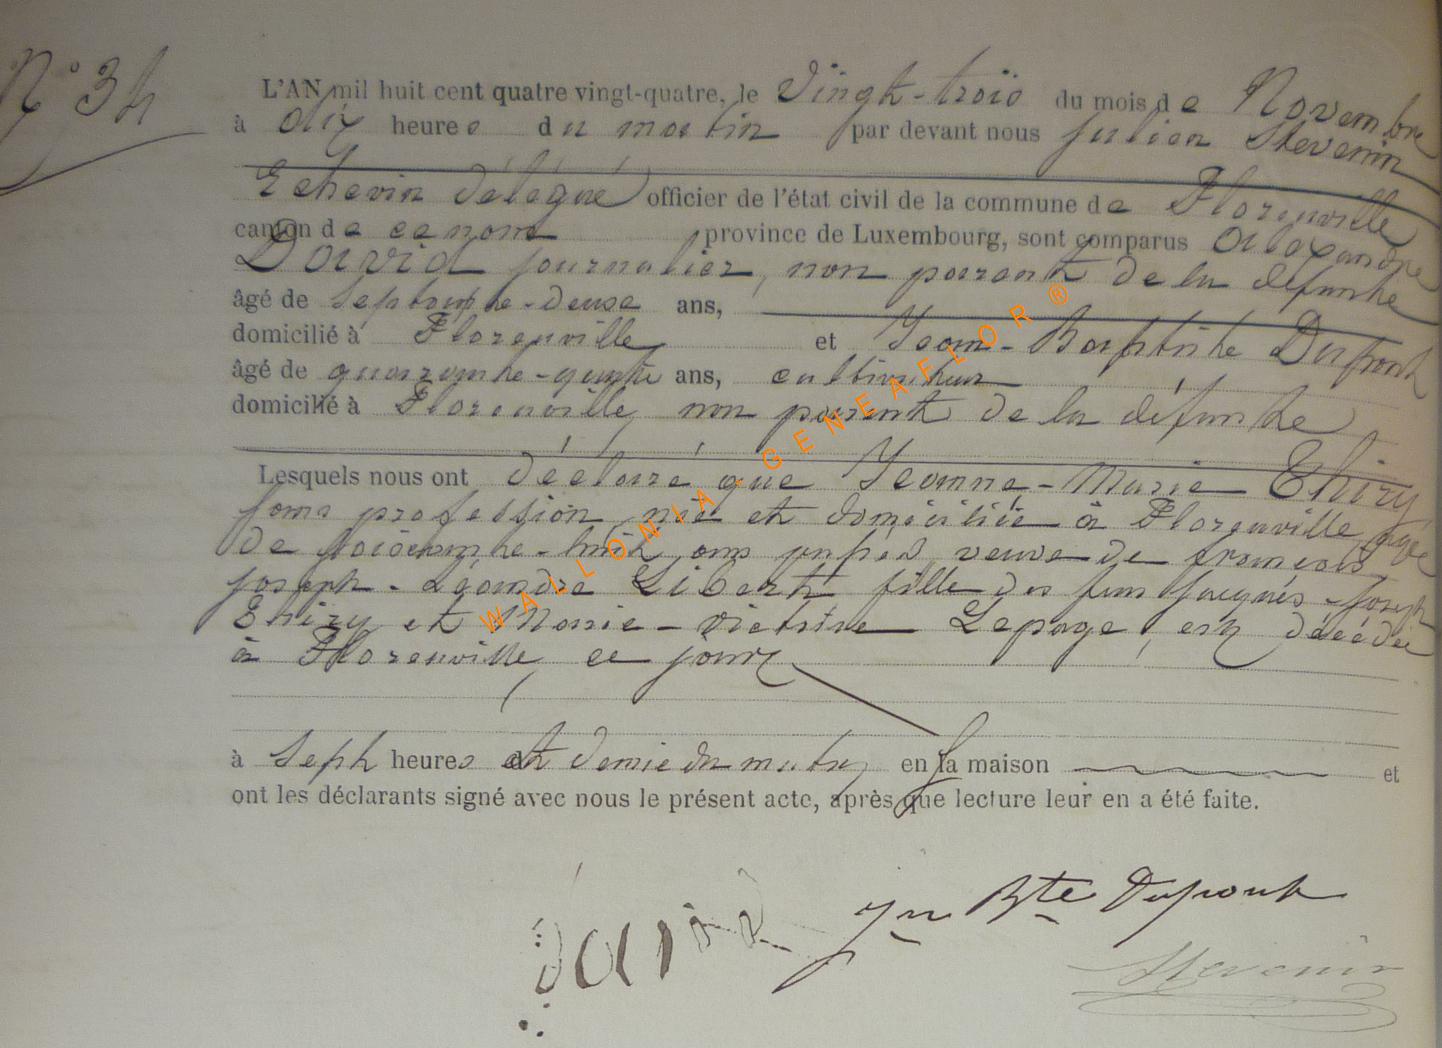 N° 34
L'AN mil huit cent quatre vingt-quatre, le Vingt-trois du mois de Novembre
à dix heures du matin par devant nous Julien Stevenin
Echevin délégué officier de l'état civil de la commune de Florenville
canton de ce nom province de Luxembourg, sont comparus Alexandre
David journalier, non parent de la défunte
âgé de septante-deux ans,
domicilié à Florenville et Jean-Baptiste Dupont
âgé de quarante-quatre ans, cultivateur
domicilié à Florenville, non parent de la défunte
Lesquels nous ont déclaré que Jeanne-Marie Thiry
sans profession, née et domiciliée à Florenville, âgée
de soixante-huit ans passés, veuve de françois
joseph-Léandre Libert fille des feus Jacques-Joseph
Thiry et Marie-Victoire Lepage, est décédée
à Florenville, ce jour
à Sept heures et demie du matin, en sa maison et
ont les déclarants signé avec nous le présent acte, après que lecture leur en a été faite.
David Jn Bte Dupont
Stevenin
WALLONIA-GENEAFLOR ®